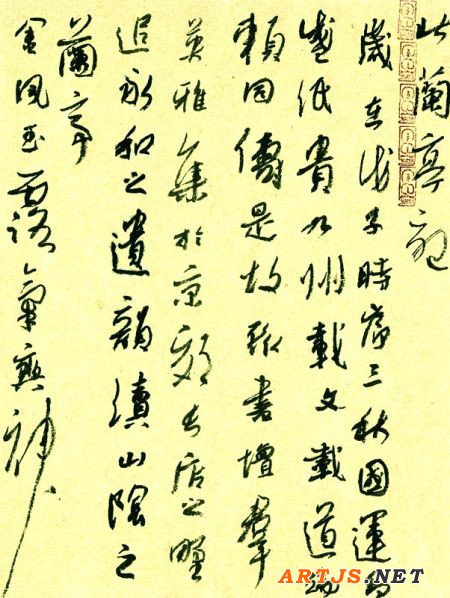 蘭亭
歲在戊子時序三秋國運昌
盛紙貴九州載文載道
賴同儔是故聯書壇羣
英雅集於京郊居之野
追永和之遺韻續山陰之
蘭亭
金風玉露氣爽神
ARTJS.NET